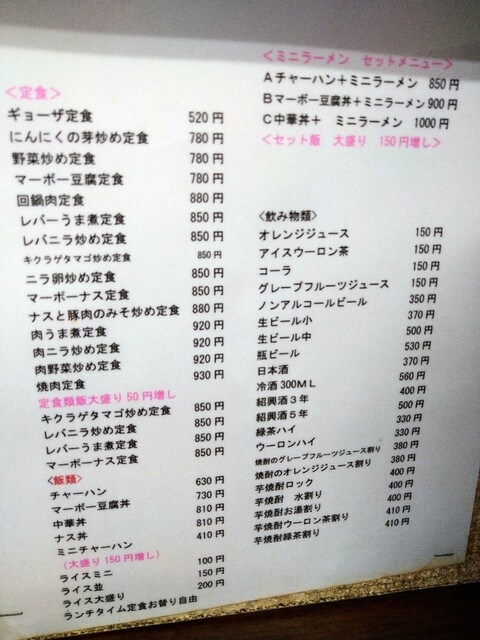 <定食>
ギョーザ定食 520円
にんにくの芽炒め定食 780円
野菜炒め定食 780円
マーボー豆腐定食 780円
回鍋肉定食 880円
レバーうま煮定食 850円
レバニラ炒め定食 850円
キクラゲタマゴ炒め定食 850円
ニラ卵炒め定食 850円
マーボーナス定食 850円
ナスと豚肉のみそ炒め定食 880円
肉うま煮定食 920円
肉ニラ炒め定食 920円
肉野菜炒め定食 920円
焼肉定食 930円
定食類飯大盛り50円増し
キクラゲタマゴ炒め定食 850円
レバニラ炒め定食 850円
レバーうま煮定食 850円
マーボーナス定食 850円
<飯類>
チャーハン 630円
マーボー豆腐丼 730円
中華丼 810円
ナス丼 810円
ミニチャーハン 410円
(大盛り150円増し)
ライスミニ 100円
ライス並 150円
ライス大盛り 200円
ランチタイム定食お替り自由
<ミニラーメン セットメニュー>
Aチャーハン+ミニラーメン 850円
Bマーボー豆腐丼+ミニラーメン900円
C中華丼+ ミニラーメン 1000円
<セット飯 大盛り 150円増し>
<飲み物類>
オレンジジュース 150円
アイスウーロン茶 150円
コーラ 150円
グレープフルーツジュース 150円
ノンアルコールビール 350円
生ビール小 370円
生ビール中 500円
瓶ビール 530円
日本酒 370円
冷酒300ML 560円
紹興酒3年 400円
紹興酒5年 500円
緑茶ハイ 330円
ウーロンハイ 330円
焼酎のグレープフルーツジュース割り 380円
焼酎のオレンジジュース割り 380円
芋焼酎ロック 400円
芋焼酎 水割り 400円
芋焼酎お湯割り 400円
芋焼酎ウーロン茶割り 410円
芋焼酎緑茶割り 410円